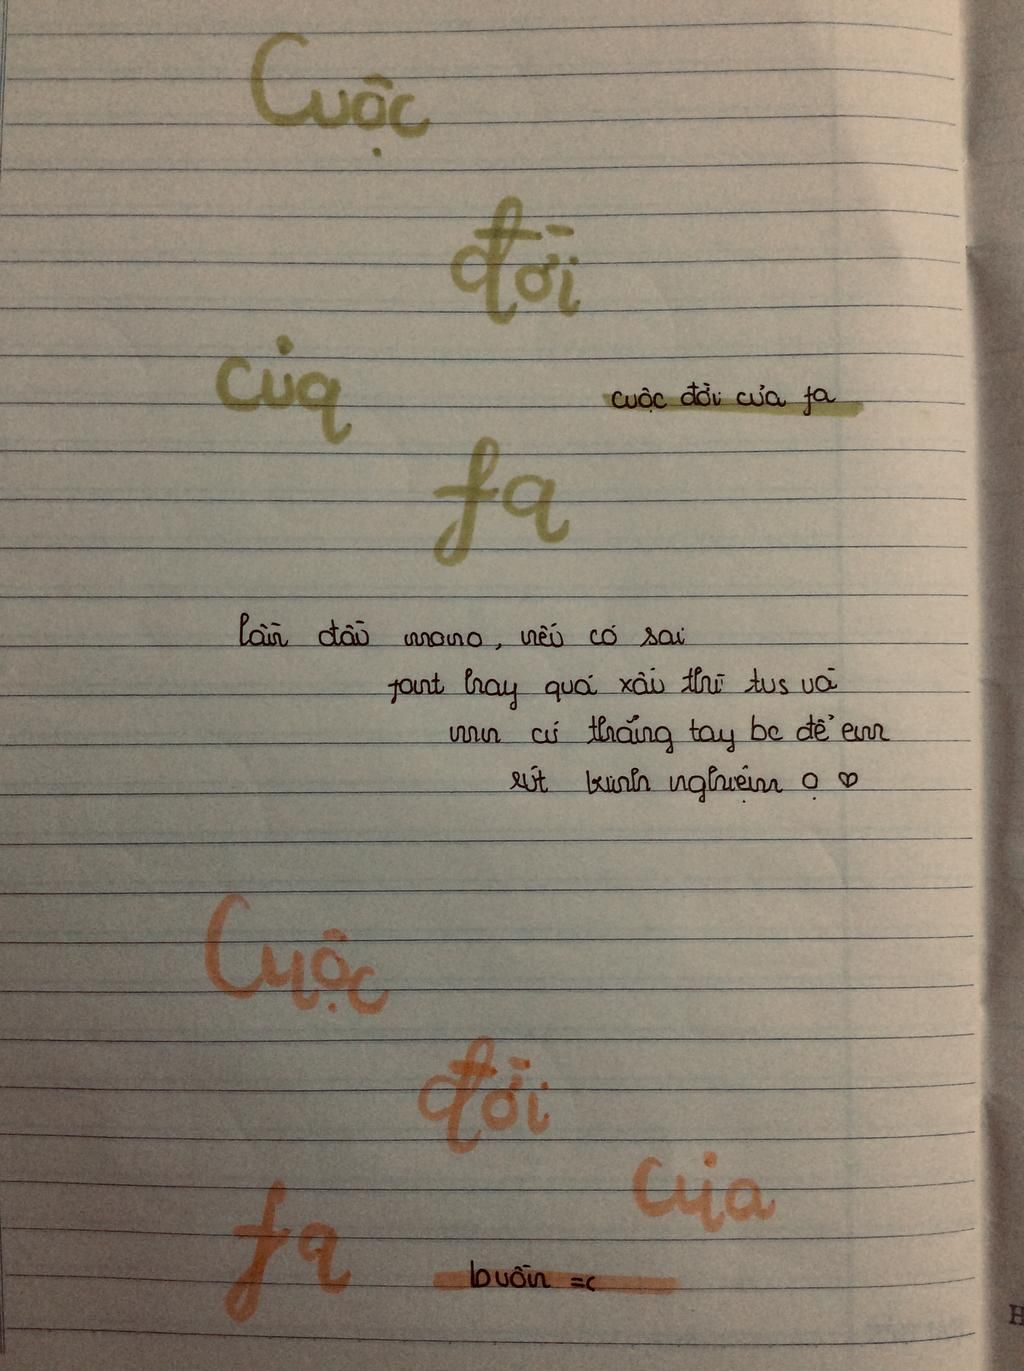 Cuộc
đời
của
fa
cuộc đời của fa
lần đầu mono, nếu có sai
font hay quá xấu thì tus và
mn cứ thẳng tay bc để em
rút kinh nghiệm ọ ♡
Cuộc
đời
của
fa
buồn =c
H